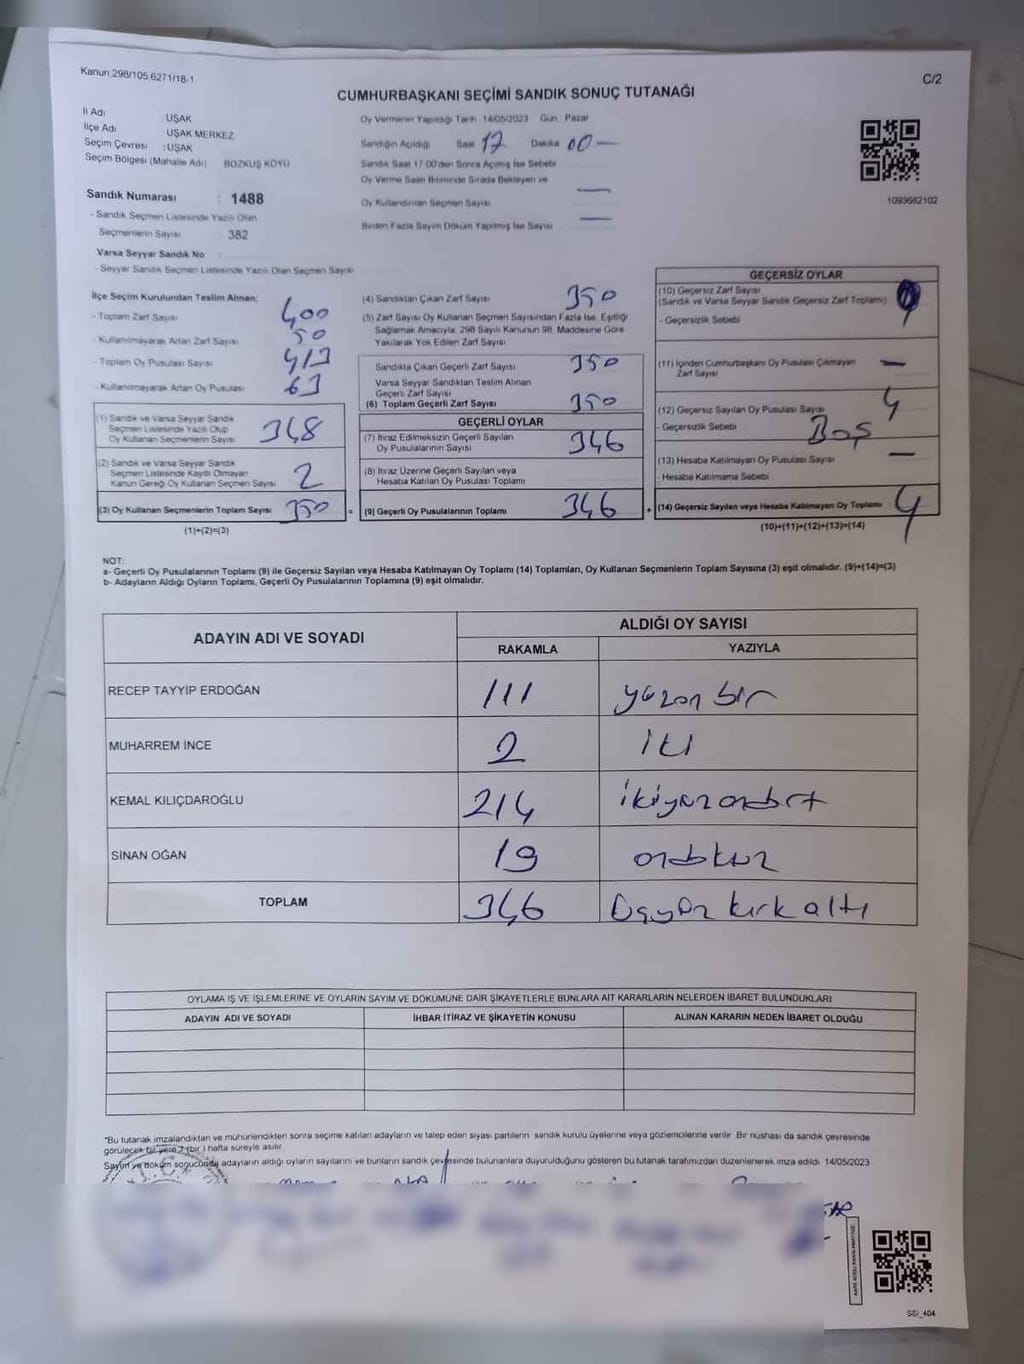 Kanun;298/105,6271/18-1
C/2
CUMHURBAŞKANI SEÇİMİ SANDIK SONUÇ TUTANAĞI
İl Adı : UŞAK
İlçe Adı : UŞAK MERKEZ
Seçim Çevresi : UŞAK
Seçim Bölgesi (Mahalle Adı) : BOZKUŞ KÖYÜ
Sandık Numarası : 1488
- Sandık Seçmen Listesinde Yazılı Olan
Seçmenlerin Sayısı 382
Varsa Seyyar Sandık No :
- Seyyar Sandık Seçmen Listesinde Yazılı Olan Seçmen Sayısı
Oy Vermenin Yapıldığı Tarih 14/05/2023 Gün Pazar
Sandığın Açıldığı Saat 17 Dakika 00
Sandık Saat 17.00'den Sonra Açılmış İse Sebebi
Oy Verme Saati Bitiminde Sırada Bekleyen ve
Oy Kullandırılan Seçmen Sayısı —
Birden Fazla Sayım Döküm Yapılmış İse Sayısı —
1093662102
İlçe Seçim Kurulundan Teslim Alınan;
- Toplam Zarf Sayısı 400
- Kullanılmayarak Artan Zarf Sayısı 50
- Toplam Oy Pusulası Sayısı 413
- Kullanılmayarak Artan Oy Pusulası 63
(1) Sandık ve Varsa Seyyar Sandık
Seçmen Listesinde Yazılı Olup
Oy Kullanan Seçmenlerin Sayısı 348
(2) Sandık ve Varsa Seyyar Sandık
Seçmen Listesinde Kayıtlı Olmayan
Kanun Gereği Oy Kullanan Seçmen Sayısı 2
(3) Oy Kullanan Seçmenlerin Toplam Sayısı 350 =
(1)+(2)=(3)
(4) Sandıktan Çıkan Zarf Sayısı 350
(5) Zarf Sayısı Oy Kullanan Seçmen Sayısından Fazla İse, Eşitliği
Sağlamak Amacıyla, 298 Sayılı Kanunun 98. Maddesine Göre
Yakılarak Yok Edilen Zarf Sayısı
Sandıkta Çıkan Geçerli Zarf Sayısı 350
Varsa Seyyar Sandıktan Teslim Alınan
Geçerli Zarf Sayısı
(6) Toplam Geçerli Zarf Sayısı 350
GEÇERLİ OYLAR
(7) İtiraz Edilmeksizin Geçerli Sayılan
Oy Pusulalarının Sayısı 346
(8) İtiraz Üzerine Geçerli Sayılan veya
Hesaba Katılan Oy Pusulası Toplamı
(9) Geçerli Oy Pusulalarının Toplamı 346 +
GEÇERSİZ OYLAR
(10) Geçersiz Zarf Sayısı
(Sandık ve Varsa Seyyar Sandık Geçersiz Zarf Toplamı)
- Geçersizlik Sebebi
(11) İçinden Cumhurbaşkanı Oy Pusulası Çıkmayan
Zarf Sayısı —
(12) Geçersiz Sayılan Oy Pusulası Sayısı 4
- Geçersizlik Sebebi Boş
(13) Hesaba Katılmayan Oy Pusulası Sayısı —
- Hesaba Katılmama Sebebi
(14) Geçersiz Sayılan veya Hesaba Katılmayan Oy Toplamı 4
(10)+(11)+(12)+(13)=(14)
NOT:
a- Geçerli Oy Pusulalarının Toplamı (9) ile Geçersiz Sayılan veya Hesaba Katılmayan Oy Toplamı (14) Toplamları, Oy Kullanan Seçmenlerin Toplam Sayısına (3) eşit olmalıdır. (9)+(14)=(3)
b- Adayların Aldığı Oyların Toplamı, Geçerli Oy Pusulalarının Toplamına (9) eşit olmalıdır.
ADAYIN ADI VE SOYADI
ALDIĞI OY SAYISI
RAKAMLA YAZIYLA
RECEP TAYYİP ERDOĞAN 111 yüzonbir
MUHARREM İNCE 2 iki
KEMAL KILIÇDAROĞLU 214 ikiyüzondört
SİNAN OĞAN 19 ondokuz
TOPLAM 346 Üçyüzkırkaltı
OYLAMA İŞ VE İŞLEMLERİNE VE OYLARIN SAYIM VE DÖKÜMÜNE DAİR ŞİKAYETLERLE BUNLARA AİT KARARLARIN NELERDEN İBARET BULUNDUKLARI
ADAYIN ADI VE SOYADI İHBAR İTİRAZ VE ŞİKAYETİN KONUSU ALINAN KARARIN NEDEN İBARET OLDUĞU
*Bu tutanak imzalandıktan ve mühürlendikten sonra seçime katılan adayların ve talep eden siyasi partilerin sandık kurulu üyelerine veya gözlemcilerine verilir. Bir nüshası da sandık çevresinde
görülecek bir yere 7 (bir ) hafta süreyle asılır.
Sayım ve döküm sonucunda adayların aldığı oyların sayılarını ve bunların sandık çevresinde bulunanlara duyurulduğunu gösteren bu tutanak tarafımızdan düzenlenerek imza edildi. 14/05/2023
SSI_404